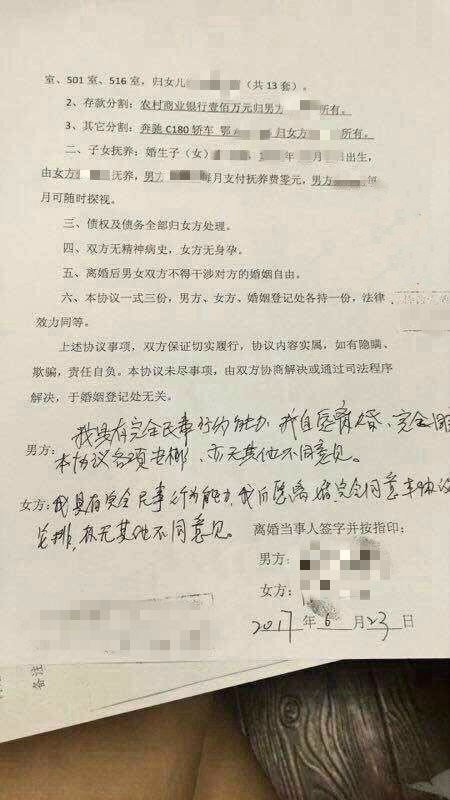 室、501 室、516 室，归女儿（共 13 套）。
2、存款分割：农村商业银行壹佰万元归男方所有。
3、其它分割：奔驰 C180 轿车 鄂归女方所有。
二、子女抚养：婚生子（女）年月出生，
由女方抚养，男方每月支付抚养费零元，男方每
月可随时探视。
三、债权及债务全部归女方处理。
四、双方无精神病史，女方无身孕。
五、离婚后男女双方不得干涉对方的婚姻自由。
六、本协议一式三份，男方、女方、婚姻登记处各持一份，法律
效力同等。
上述协议事项，双方保证切实履行，协议内容实属，如有隐瞒、
欺骗，责任自负。本协议未尽事项，由双方协商解决或通过司法程序
解决，于婚姻登记处无关。
男方：我具有完全民事行为能力，我自愿离婚，完全同
本协议各项安排，亦无其他不同意见。
女方：我具有完全民事行为能力，我自愿离婚，完全同意本协议
安排，亦无其他不同意见。
离婚当事人签字并按指印：
男方：
女方：
2017 年 6 月 23 日
备注